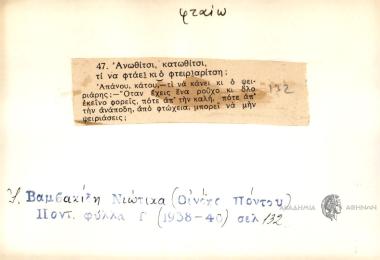 φταίω
47. Ἀνωθίτσι, κατωθίτσι,
τί να φτάει κι ὁ φτειριαρίτση;
Ἀπάνου, κάτου,—τί νὰ κάνει κι ὁ ψει-
ριάρης;—Ὅταν ἔχεις ἕνα ροῦχο κι ὅλο
ἐκεῖνο φορεῖς, πότε ἀπ' τὴν καλή, πότε ἀπ'
τὴν ἀνάποδη, ἀπὸ φτώχεια, μπορεῖ νὰ μὴν
ψειριάσεις;
132
Βαμβακίδη Νιώτικα (Οἰνόης Πόντου)
Ποντ. φύλλα Γ (1938-40) σελ 132
ΑΚΑΔΗΜΙΑ ΑΘΗΝΩΝ